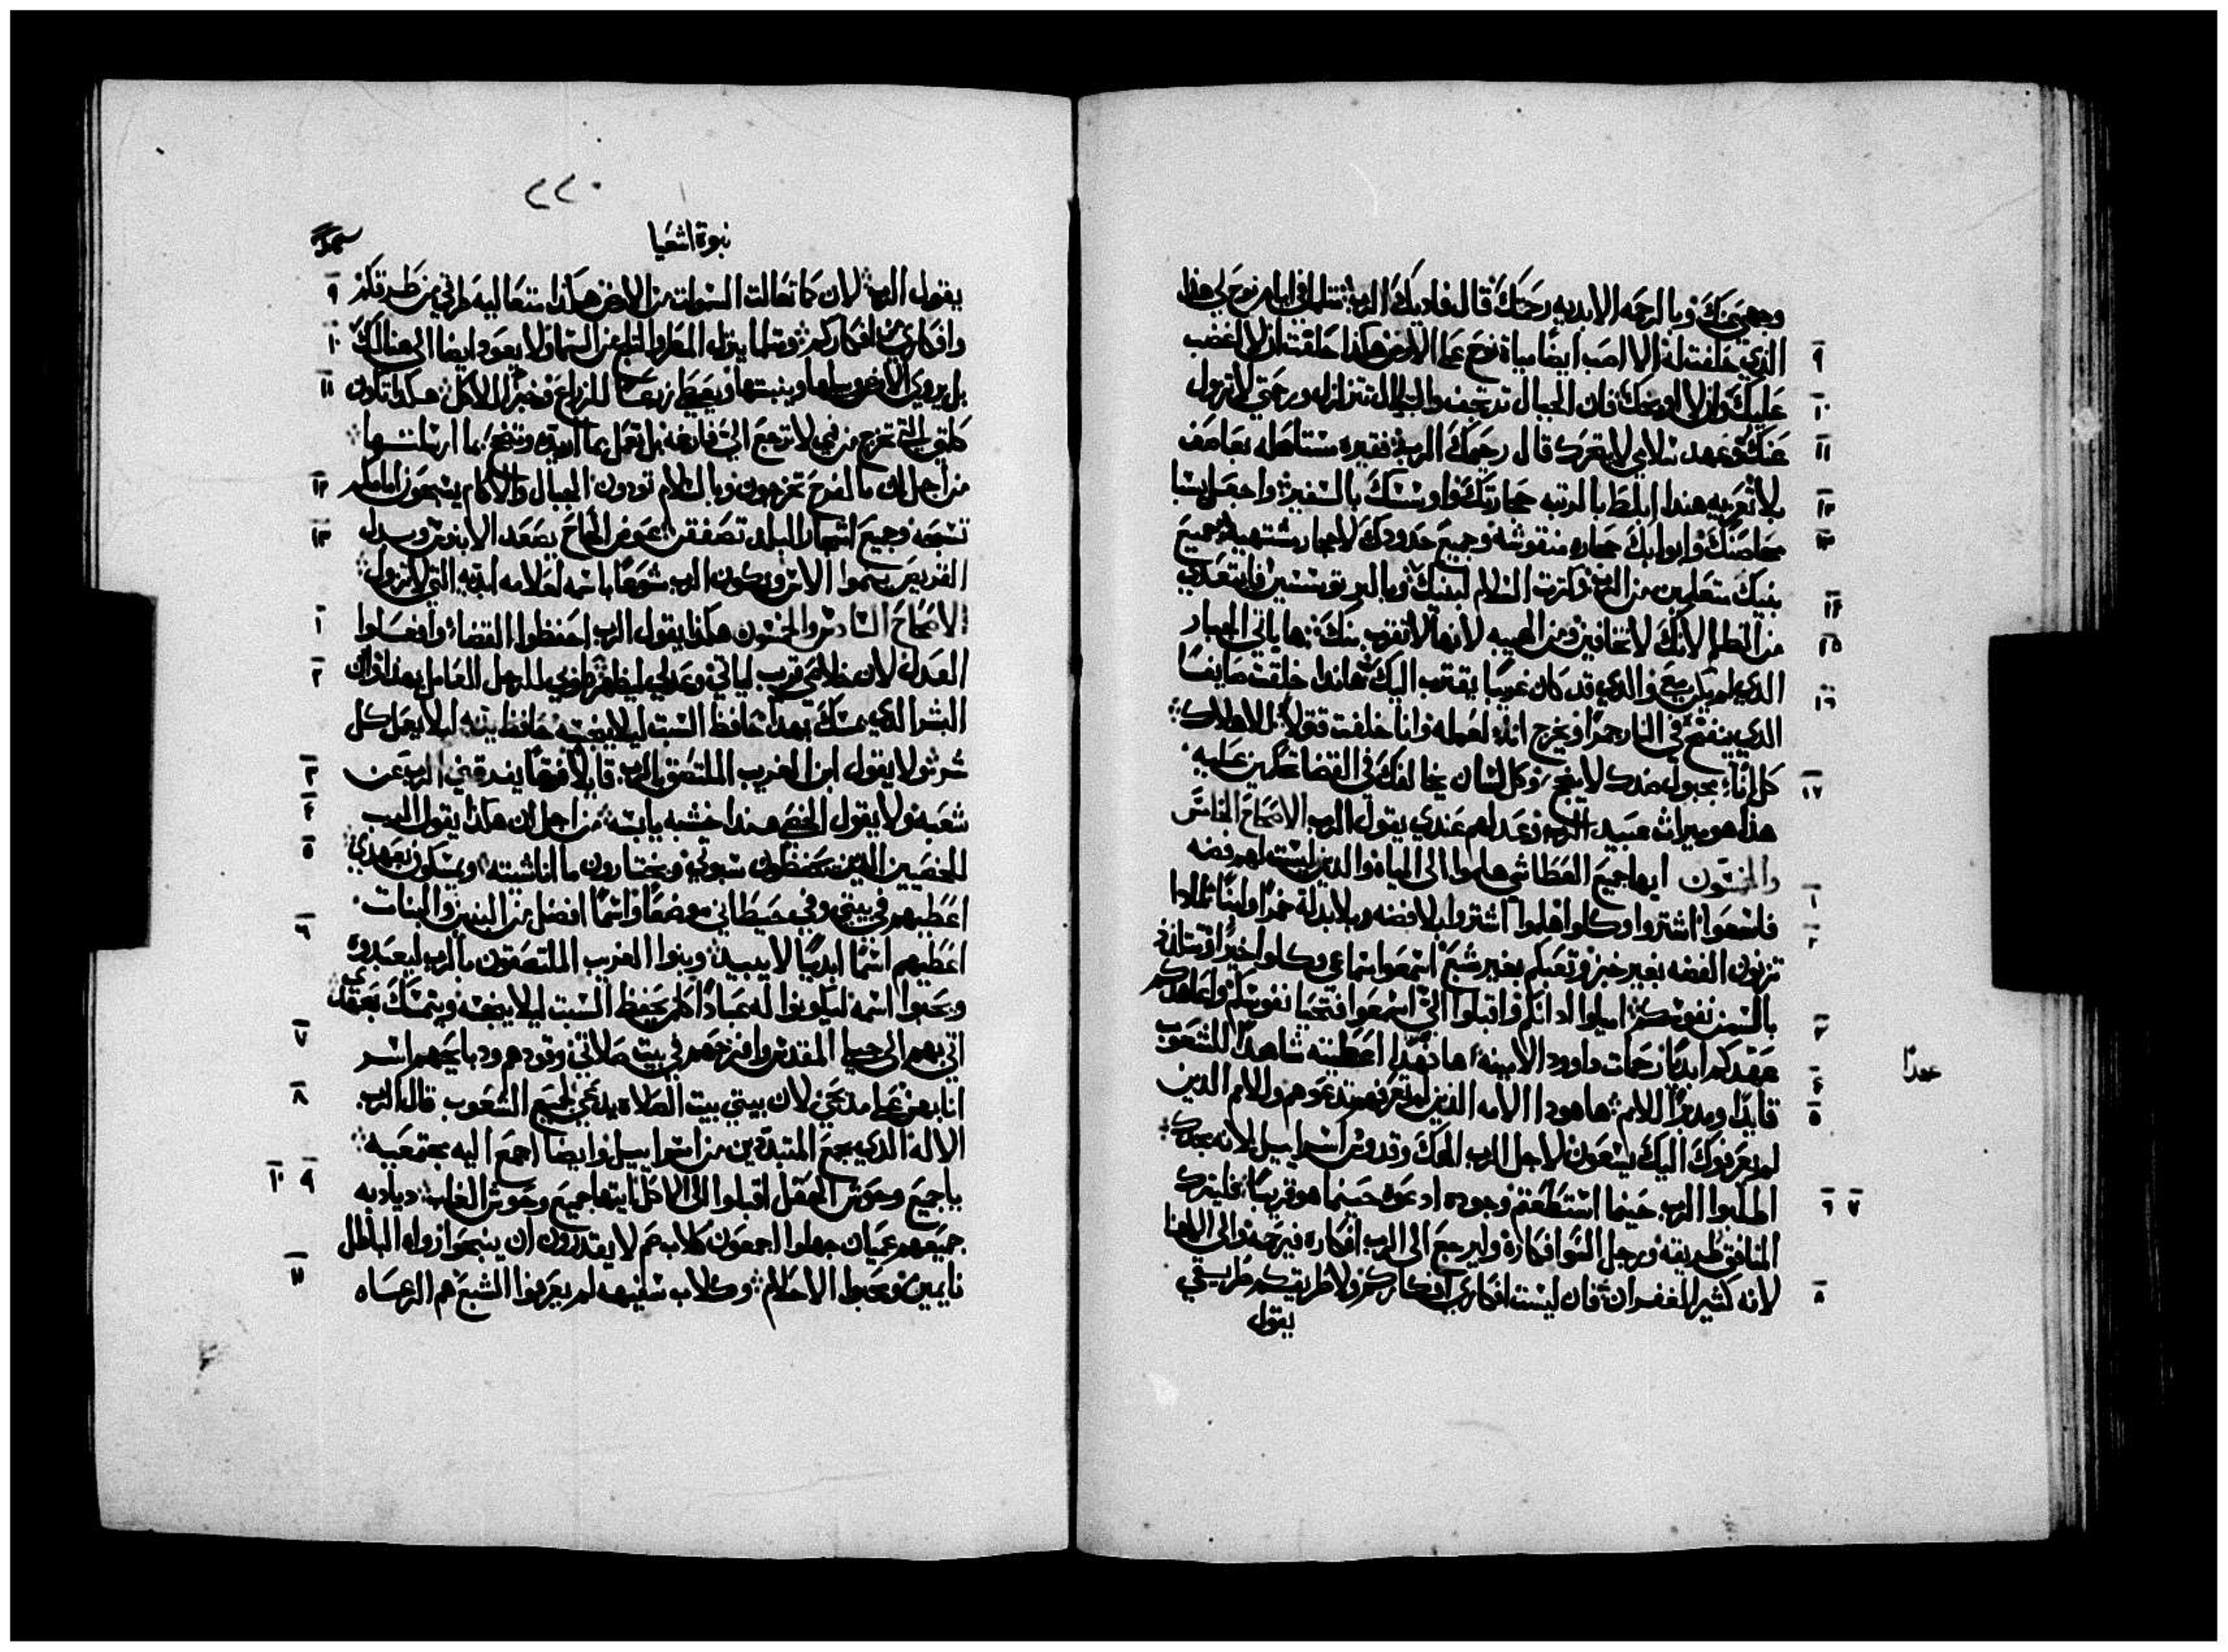 وجهي عنك وبالرحمه الابديه رحمتك قال فاديك الرب مثلما في ايام نوح لي هذا
الذي حلفت له الا اصب ايضا مياة نوح علي الارض هكذا حلفت ان لا اغضب
٩
عليك وان لا اوبخك فان الجبال ترتجف والتلال تتزلزل ورحمتي لا تزول
١٠
عنك وعهد سلامي لا يتحرك قال رحيمك الرب فقيره مستاصله بعاصف
١١
بلا تعزيه هندا ابلط بالرتبه حجارتك واوسسك بالسفير واجعل يشبا
١٢
محاصنك وابوابك حجاره منقوشه وجميع حدودك لاحجار مشتهيه جميع
١٣
بنيك متعلمين من الرب وكثرت السلام لبنيك وبالبر توسسين فابتعدي
١٤
من الظلم لانك لا تخافين ومن الهيبه لانها لا تقرب منك ها ياتي الجار
١٥
الذي لم يكن معي والذي قد كان غريبا يقترب اليك هاندا خلقت صايغا
١٦
الذي ينفخ في النار جمرا ويخرج اناء لعمله وانا خلقت قتولا للاهلاك
كل اناء مجبول ضدك لا ينجح وكل لسان يخالفك في القضا تحكمين عليه
١٧
هذا هو ميراث عبيد الرب وعدلهم عندي يقول الرب الاصحاح الخامس
والخمسون ايها جميع العطاش هلموا الى المياة والذين ليست لهم فضه
١
فاسعوا اشتروا وكلوا هلموا اشتروا بلا فضه وبلا بدله خمرا ولبنا لماذا
٢
تزنون الفضه بغير خبز وتعبكم بغير شبع استمعوا استماعي وكلوا خيرا
بالسمن نفوسكم اميلوا اذانكم واقبلوا اليّ اسمعوا فتحيا نفوسكم واعاهدكم
٣
عهدكم ابديا رحمات داوود الامينه ها نهدا اعطيته شاهدا للشعوب
٤
عهدا
قايدا ومدبرا للامم ها هودا الامه الذين لم تعرفهم تدعوهم والامم الذين
٥
لم يعرفوك اليك يسعون لاجل الرب الهك وقدوس اسراييل لانه مجدك
اطلبوا الرب حينما استطعتم وجوده ادعوه حينما هو قريبا فليترك
٧ ٦
المنافق طريقه ورجل السوا افكاره وليرجع الى الرب فيرحمه والى الاهنا
لانه كثير الغفران فان ليست افكاري افكاركم ولا طريقكم طريقتي
٨
يقول
٢٢٠
نبوة اشعيا
يقول الرب لان كما تعالت السموات من الارض هكذا متعاليه طرقي من طرقكم
٩
وافكاري من افكاركم ومثلما ينزل المطر والثلج من السما ولا يعود ايضا الى هنالك
١٠
بل يروي الارض ويبلها وينبتها ويعطي زرعا للزارع وخبزا للاكل هكذا تكون
١١
كلمتي التي تخرج من فمي لا ترجع اليّ فارغه بل تعمل بما اريده وتنجح بما ارسلتها
من اجل ان بالفرح تخرجون وبالسلام توردون الجبال والاكام يسبحون امامكم
١٢
تسبحه وجميع اشجار البلد تصفقن عوض العاج يصعد الابنوس وبدله
١٣
القريص ينموا الاس ويكون الرب شمعا باسمه لعلامه ابديه التي لا تزول
الاصحاح السادس والخمسون هكذا يقول الرب احفظوا القضاء وافعلوا
١
العدله لان خلاصي قريب لياتي وعدلي ليظهر طوبي للرجل العامل بهذا وابن
٢
البشر الذي يتمسك بهدا حافظ السبت ليلا ينجسه حافظ يديه ليلا يعمل كل
شر ولا يقول ابن الغريب الملتصق بالرب قايلا فرقا يفرقني الرب عن
٣
شعبه ولا يقول الخصي هندا خشبه يابسه من اجل ان هكذا يقول الرب
٤
للخصيين الذين يحفظون سبوتي ويختارون ما انا شيته ويمسكون بعهدي
٥
اعطيهم في بيتي وفي حيطاني موضعا واسما افضل من البنين والبنات
اعطيهم اسما ابديا لا يبيد وبنوا الغريب الملتصقون بالرب ليعبدوه
٦
ويحبوا اسمه ليكونوا له عبادا كل من يحفظ السبت ليلا ينجسه ويتمسك بعهدي
اتي بهم الى جبل المقدس وافرحهم في بيت صلاتي وقودهم ودبايحهم اسر
٧
انا بهن علي مدبحي لان بيتي بيت الصلاه يدعي لجميع الشعوب قال الرب
٨
الاله الذي يجمع المتبددين من اسراييل وايضا اجمع اليه مجتمعيه
يا جميع وحوش الحقل اقبلوا الى الاكل يا ايتها جميع وحوش الغاب ديادبه
٩ ١٠
جميعهم عميان جهلوا اجمعون كلاب خرس لا يقدرون ان ينبحوا راوا الباطل
نايمين ومحبوا الاحلام وكلاب سفيهه لم يعرفوا الشبع هم الرعاه
١١